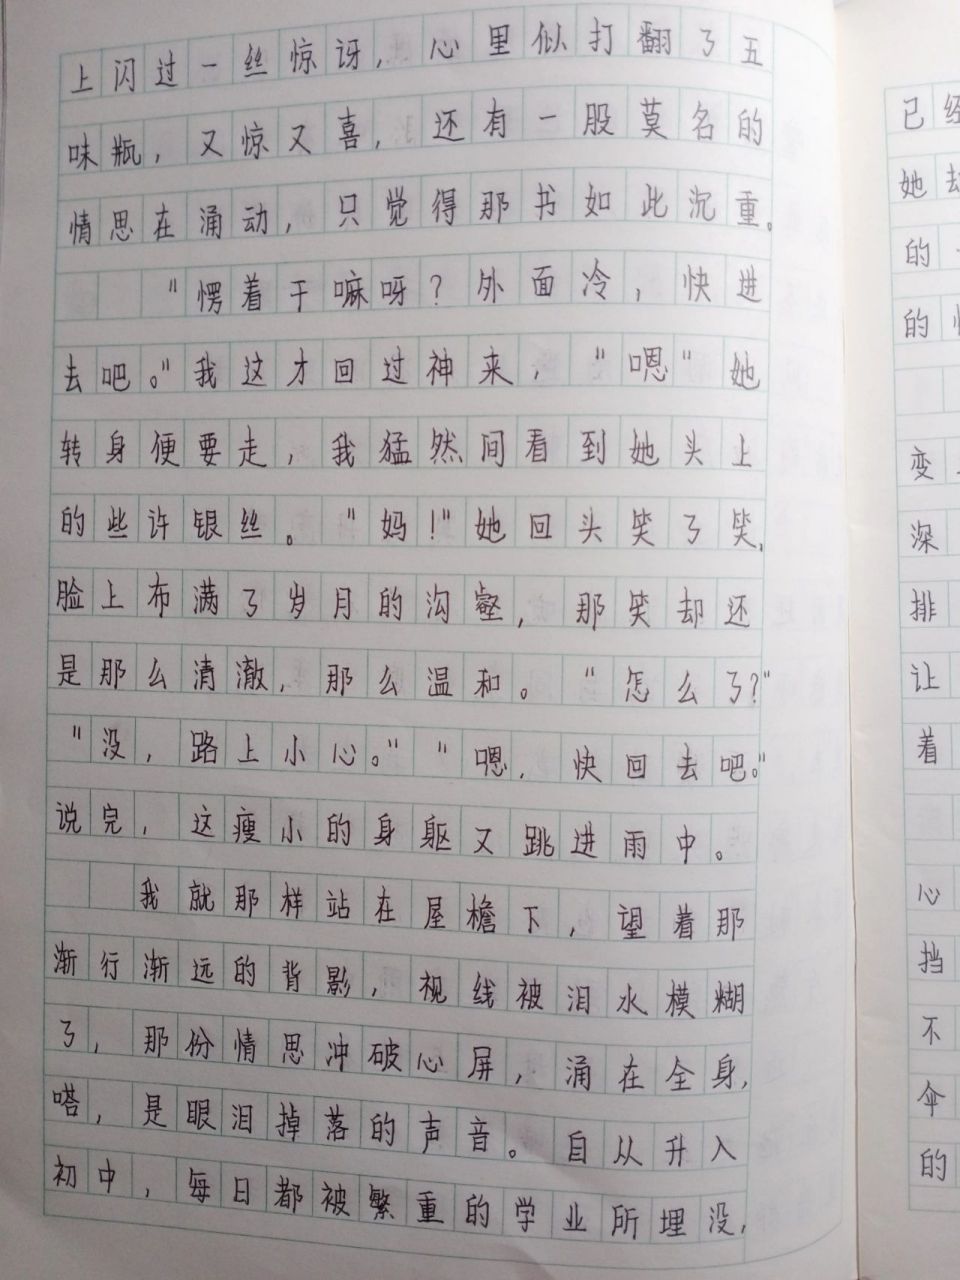 上闪过一丝惊讶，心里似打翻了五
味瓶，又惊又喜，还有一股莫名的
情思在涌动，只觉得那书如此沉重。
“愣着干嘛呀？外面冷，快进
去吧。”我这才回过神来，“嗯”她
转身便要走，我猛然间看到她头上
的些许银丝。“妈！”她回头笑了笑，
脸上布满了岁月的沟壑，那笑却还
是那么清澈，那么温和。“怎么了？”
“没，路上小心。”“嗯，快回去吧。”
说完，这瘦小的身躯又跳进雨中。
我就那样站在屋檐下，望着那
渐行渐远的背影，视线被泪水模糊
了，那份情思冲破心屏，涌在全身，
嗒，是眼泪掉落的声音。自从升入
初中，每日都被繁重的学业所埋没，
已经
她却
的
的
变
深
排
让
着
心
挡
不
伞
的